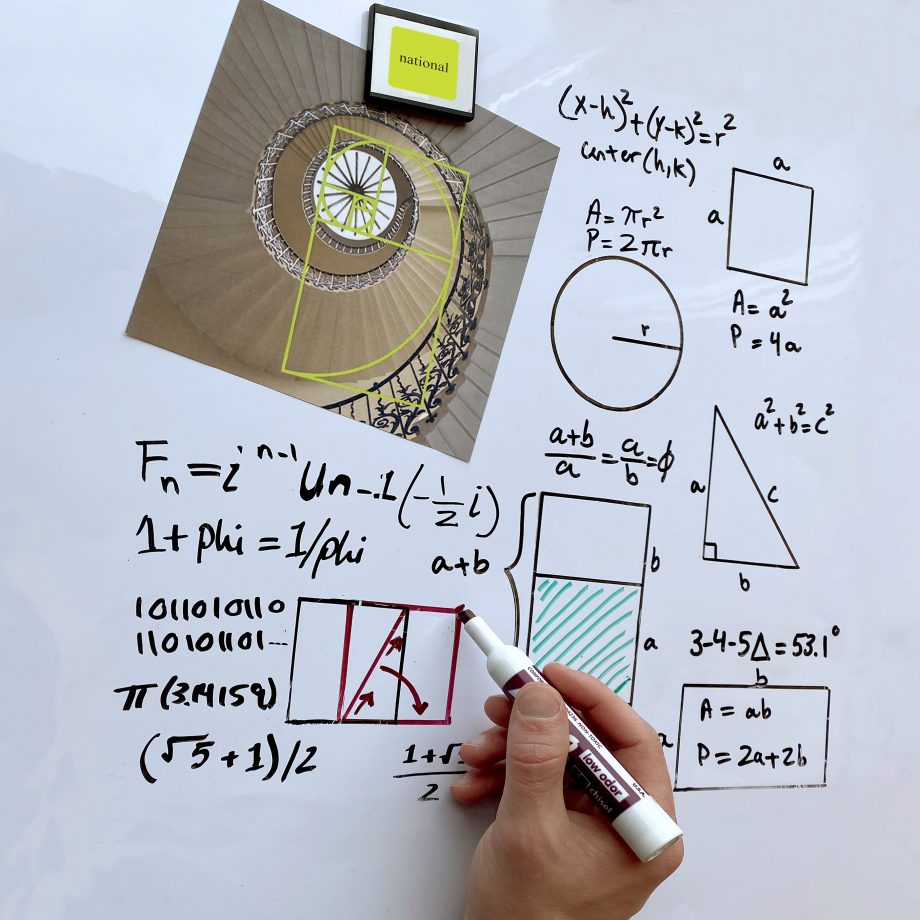 national
(x-h)²+(y-k)²=r²
center(h,k)
A=πr²
P=2πr
r
a
a
A=a²
P=4a
a²+b²=c²
a
c
b
(a+b)/a=a/b=ϕ
a+b
b
a
Fn=i^(n-1) Un-1(-1/2 i)
1+phi=1/phi
1011010110
110101101--
π(3.14159)
(√5+1)/2
1+√5
2
3-4-5Δ=53.1°
b
a
A=ab
P=2a+2b
low odor
chisel